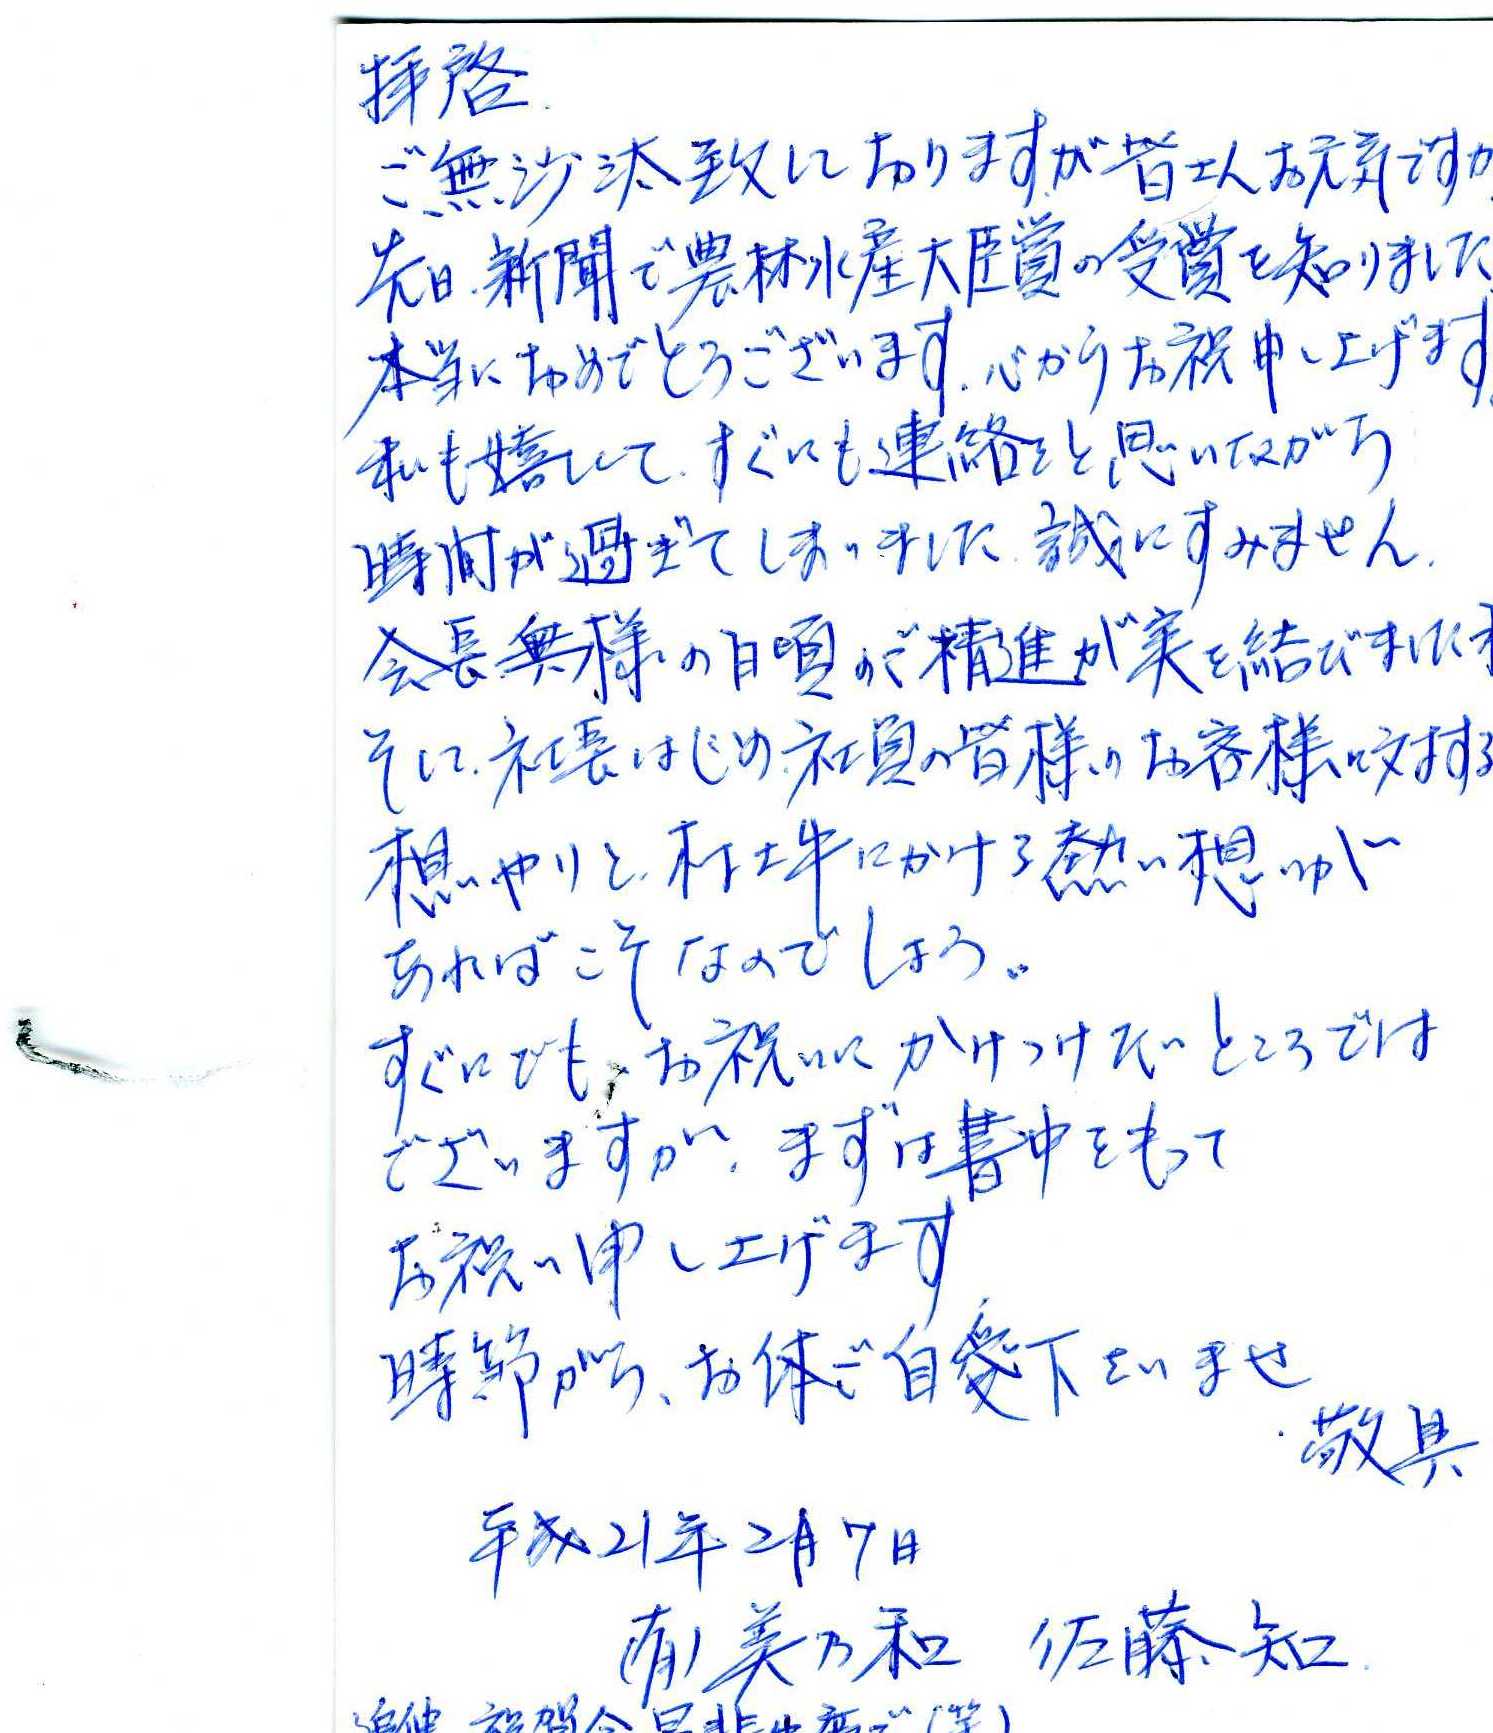 拝啓.
ご無沙汰致しておりますが皆さんお元気ですか
先日、新聞で農林水産大臣賞の受賞を知りました
本当におめでとうございます。心からお祝申し上げます。
私も嬉しくて、すぐにも連絡をと思いながら
時間が過ぎてしまいました。誠にすみません。
会長 様の日頃のご精進が実を結びましたね
そして、社長はじめ、社員の皆様のお客様に対する
想いやりと、村上牛にかける熱い想いが
あればこそなのでしょう。
すぐにでも、お祝いにかけつけたいところでは
ございますが、まずは書中をもって
お祝い申し上げます
時節がら、お体ご自愛下さいませ
敬具
平成21年2月7日
(有)美乃和 佐藤 知
追伸 祝賀会是非 (笑)